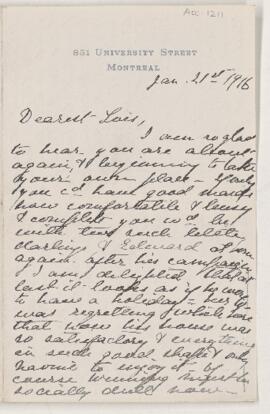 Acc. 1211
851 UNIVERSITY STREET
MONTREAL
Jan. 21st 1916
Dearest Lois,
I am so glad
to hear you are about
again, & beginning to take
your own place – If only
you c'd have good maids
how comfortable & busy
& complete you w'd be
with two such little
darlings & Edward at home
again after his campaign
I am delighted that at
last it looks as if he was
to have a holiday – he
was regretting
that now his house was
so satisfactory & everything
in such good shape & only
having to enjoy it by
course
socially dull now –